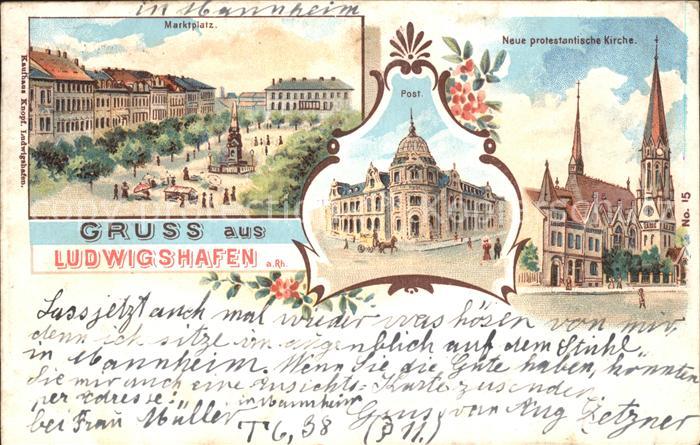 in Mannheim
Marktplatz.
Neue protestantische Kirche.
Post.
Kaufhaus Knopf, Ludwigshafen.
No. 15
GRUSS aus
LUDWIGSHAFEN a.Rh.
Lass jetzt auch mal wieder was hösen von mir,
denn ich sitze im augenblich auf dem Stuhl"
in Mannheim. Wenn Sie die Güte haben, konnten
Sie mir auch eine Ansichts-Karte zusenden
per Adresse:" in Mannheim
bei Frau Müller T 6, 38 (P 11.) Gruss von Aug Zetzner